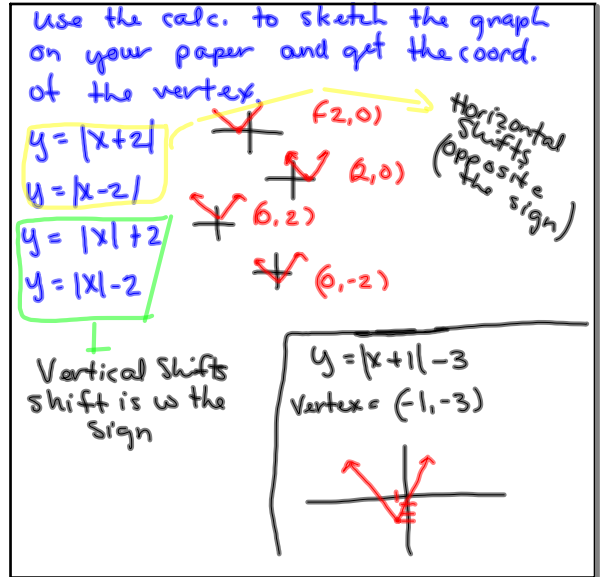 use the calc. to sketch the graph
on your paper and get the coord.
of the vertex.
y = |x+2|
(-2,0)
y = |x-2|
(2,0)
y = |x| + 2
(0,2)
y = |x| - 2
(0,-2)
Horizontal
Shifts
(opposite
the sign)
Vertical Shifts
shift is w the
sign
y = |x+1| - 3
Vertex = (-1,-3)